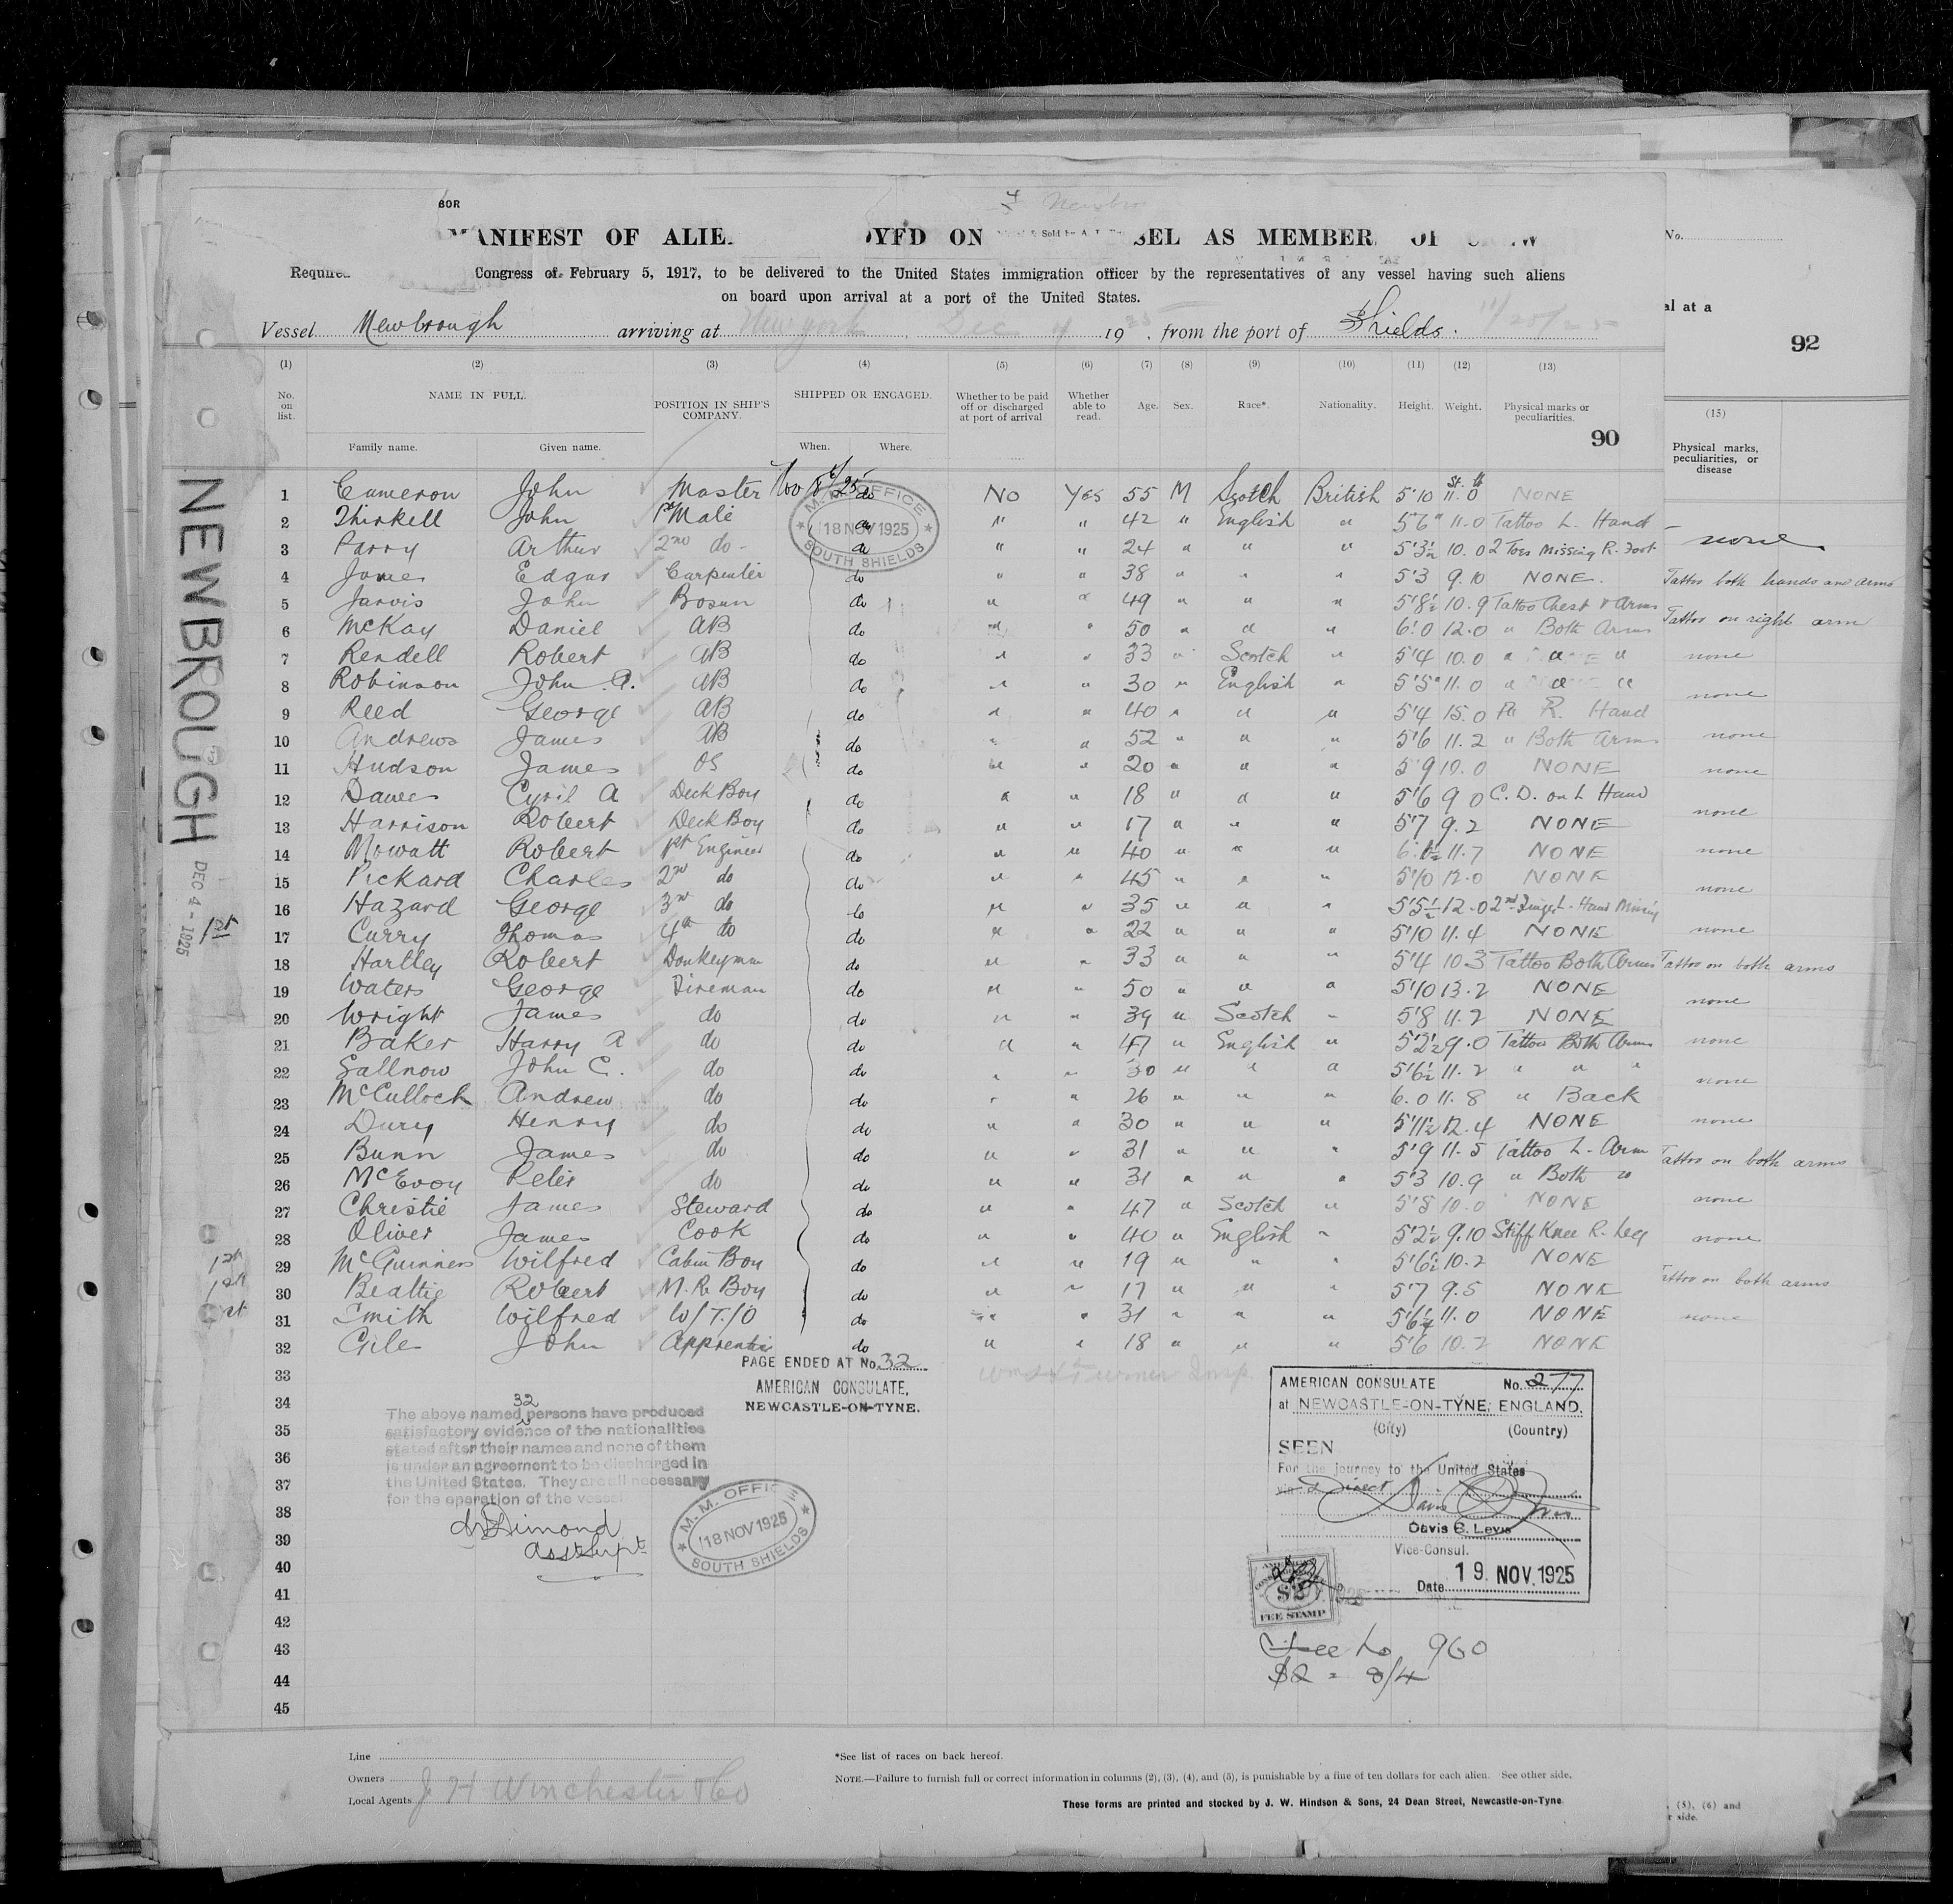 BOR
MANIFEST OF ALIE OYED ON SEL AS MEMBER OF
Required Congress of February 5, 1917, to be delivered to the United States immigration officer by the representatives of any vessel having such aliens
on board upon arrival at a port of the United States.
Vessel Newbrough arriving at New York Dec 4 1925, from the port of Shields. 11/20/25
No.
al at a
92
(1) (2) (3) (4) (5) (6) (7) (8) (9) (10) (11) (12) (13)
No. on list. NAME IN FULL. POSITION IN SHIP'S COMPANY. SHIPPED OR ENGAGED. Whether to be paid off or discharged at port of arrival Whether able to read. Age. Sex. Race*. Nationality. Height. Weight. Physical marks or peculiarities.
90
Family name. Given name. When. Where.
(15)
Physical marks, peculiarities, or disease
St. lb
1 Cameron John Master Nov 25 do No Yes 55 M Scotch British 5'10 11.0 NONE
2 Thirkell John 1st Mate do " " 42 " English " 5'6" 11.0 Tattoo L. Hand
3 Parry Arthur 2nd do - do " " 24 " " " 5'3½ 10.0 2 Toes Missing R. Foot
4 James Edgar Carpenter do " " 38 " " " 5'3 9.10 NONE.
5 Jarvis John Bosun do " " 49 " " " 5'8½ 10.9 Tattoo Chest & Arms
6 McKay Daniel AB do " " 50 " " " 6'.0 12.0 " Both Arms
7 Rendell Robert AB do " " 33 " Scotch " 5'4 10.0 " " "
8 Robinson John AB do " " 30 " English " 5'5" 11.0 " " "
9 Reed George AB do " " 40 " " " 5'4 15.0 R. Hand
10 Andrews James AB do " " 52 " " " 5'6 11.2 " Both Arms
11 Hudson James OS do " " 20 " " " 5'9 10.0 NONE
12 Dawes Cyril A Deck Boy do " " 18 " " " 5'6 9 0 C.D. on L Hand
13 Harrison Robert Deck Boy do " " 17 " " " 5'7 9.2 NONE
14 Mowatt Robert 1st Engineer do " " 40 " " " 11.7 NONE
15 Pickard Charles 2nd do do " " 45 " " " 5'10 12.0 NONE
16 Hazard George 3rd do do " " 35 " " " 5'5½ 12.0 2nd Finger L. Hand Missing
17 Curry Thomas 4th do do " " 22 " " " 5'10 11.4 NONE
18 Hartley Robert Donkeyman do " " 33 " " " 5'4 10.3 Tattoo Both Arms
19 Waters George Fireman do " " 50 " " " 5'10 13.2 NONE
20 Wright James do do " " 39 " Scotch " 5'8 11.2 NONE
21 Baker Harry A do do " " 47 " English " 5'2½ 9.0 Tattoo Both Arms
22 Sallnow John C. do do " " 30 " " " 5'6½ 11.2 " " "
23 McCulloch Andrew do do " " 26 " " " 6.0 11.8 " Back
24 Dury Henry do do " " 30 " " " 5'11½ 12.4 NONE
25 Bunn James do do " " 31 " " " 5'9 11.5 Tattoo L. Arm
26 McEvoy Peter do do " " 31 " " " 5'3 10.9 " Both "
27 Christie James Steward do " " 47 " Scotch " 5'8 10.0 NONE
28 Oliver James Cook do " " 40 " English " 5'2½ 9.10 Stiff Knee R. Leg
29 McGuinness Wilfred Cabin Boy do " " 19 " " " 5'6½ 10.2 NONE
30 Beattie Robert M.R. Boy do " " 17 " " " 5'7 9.5 NONE
31 Smith Wilfred W/T/O do " " 31 " " " 5'6¼ 11.0 NONE
32 Gile John Apprentice do " " 18 " " " 5'6 10.2 NONE
33
34
35
36
37
38
39
40
41
42
43
44
45
none
Tattoo both hands and arms
Tattoo on right arm
none
none
none
none
none
none
none
none
Tattoo on both arms
none
none
none
none
Tattoo on both arms
none
none
Tattoo on both arms
none
M.M. OFFICE
18 NOV 1925
SOUTH SHIELDS
NEWBROUGH
DEC 4 - 1925
1st
1st
1st
1st
PAGE ENDED AT No. 32
AMERICAN CONSULATE,
NEWCASTLE-ON-TYNE.
32
The above named persons have produced
satisfactory evidence of the nationalities
stated after their names and none of them
is under an agreement to be discharged in
the United States. They are all necessary
for the operation of the vessel
Dimond
Asst Supt
M.M. OFFICE
18 NOV 1925
SOUTH SHIELDS
Turner Insp.
AMERICAN CONSULATE No. 277
at NEWCASTLE-ON-TYNE, ENGLAND.
(City) (Country)
SEEN
For the journey to the United States
via Direct
Davis B. Levis
Vice-Consul.
Date 19. NOV. 1925
AMERICAN
$2
FEE STAMP
Fee No 960
$2 = 8/4
Line
Owners
Local Agents J H Winchester & Co
*See list of races on back hereof.
NOTE.—Failure to furnish full or correct information in columns (2), (3), (4), and (5), is punishable by a fine of ten dollars for each alien. See other side.
These forms are printed and stocked by J. W. Hindson & Sons, 24 Dean Street, Newcastle-on-Tyne.
, (5), (6) and
r side.